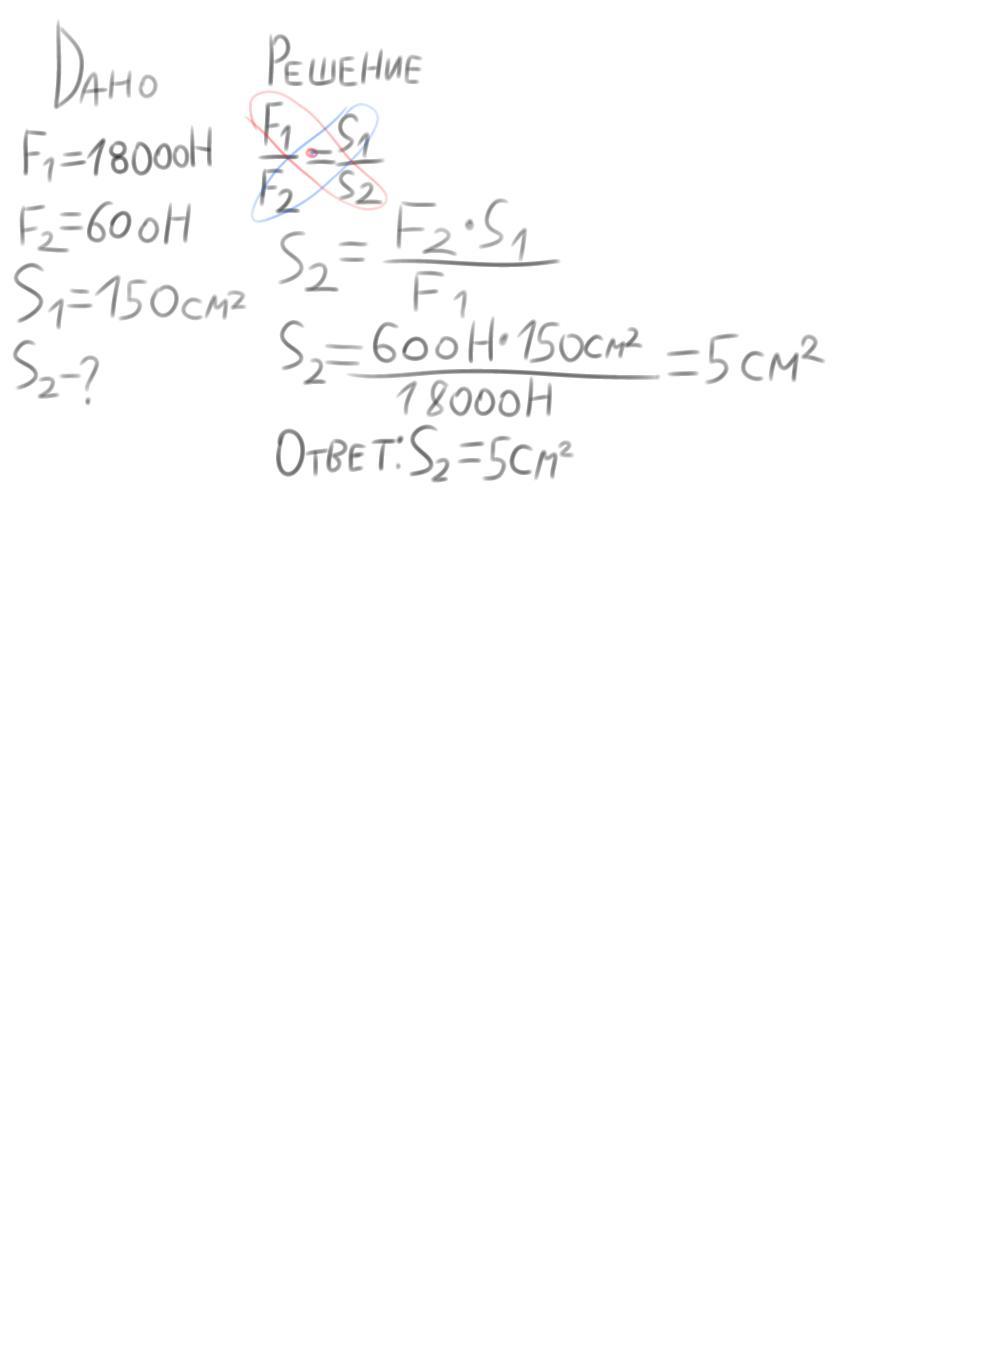 Дано
F₁=18000Н
F₂=600Н
S₁=150см²
S₂-?
Решение
F₁/F₂=S₁/S₂
S₂=F₂·S₁/F₁
S₂=600Н·150см²/18000Н=5см²
Ответ:S₂=5см²